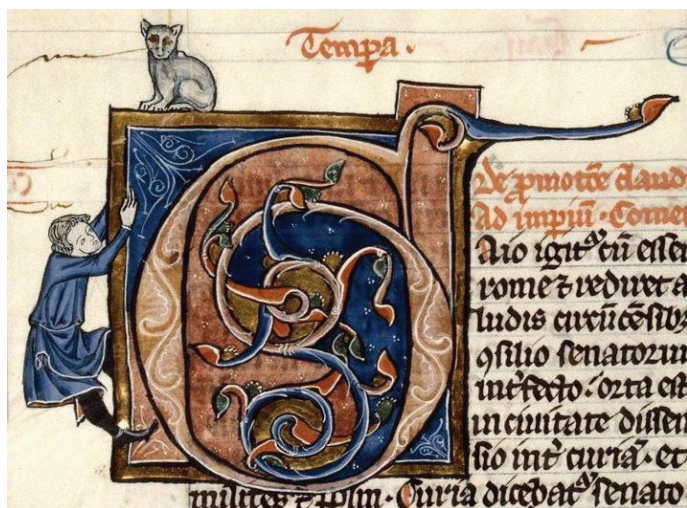 Tempa.
De pmotõe claud
Ad impiũ. Comeſ
G
Aio igit᷒ cũ eſſer
rome ⁊ rediret a
ludis circũcẽſib᷒
ꝯſilio ſenatorum
int̾fecto. orta eſt
in ciuitate diſſen
ſio int̾ curiã. et
milites ⁊ pp̃lm. Curia dicebat᷒ ſenato